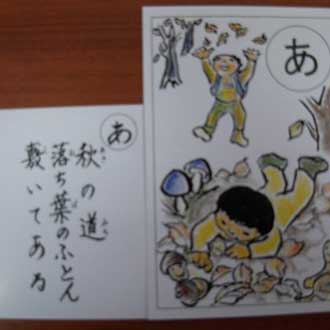 あ
秋の道
落ち葉のふとん
敷いてある
あ